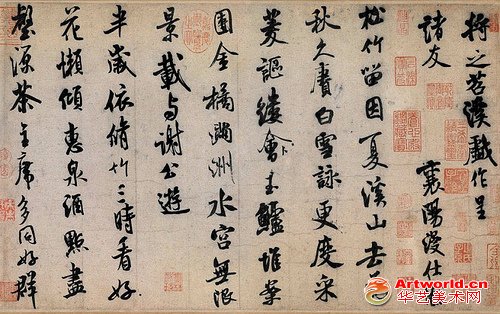 將之苕溪戲作呈
諸友
襄陽漫仕
松竹留因夏溪山去為
秋久賡白雪詠更度采
菱謳縷會玉鱸堆案
團金橘滿洲水宮無限
景載與謝公遊
半歲依脩竹三時看好
花懶傾惠泉酒點盡
壑源茶主席多同好群
Artworld.cn
华艺美术网